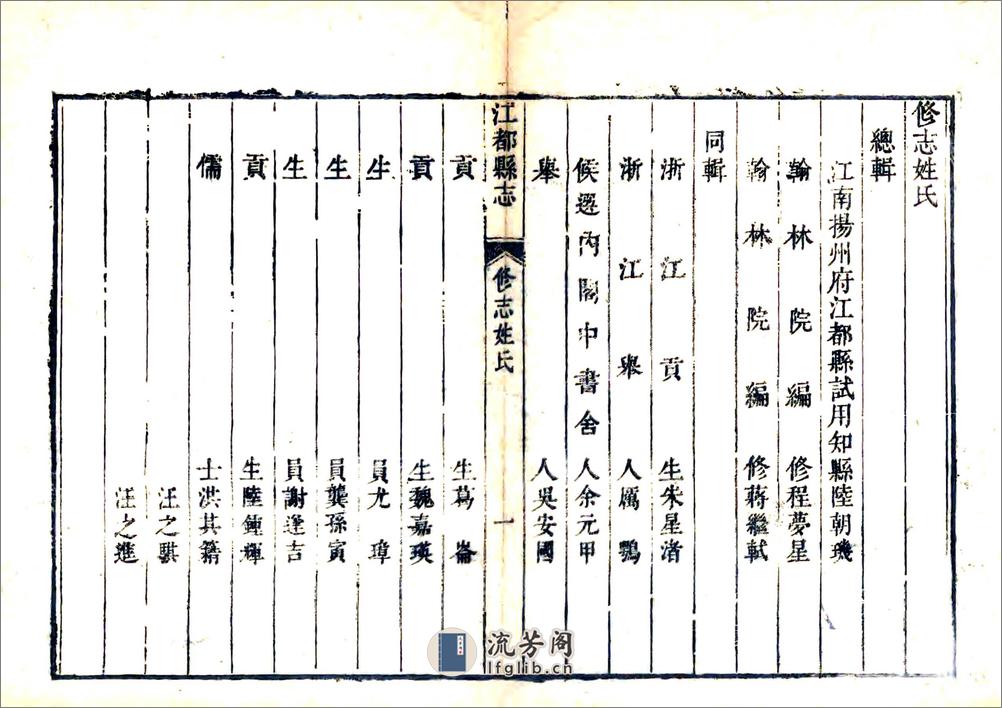 修志姓氏
總輯
江南揚州府江都縣試用知縣陸朝璣
翰林院編修程夢星
翰林院編修蔣繼軾
同輯
浙江貢生朱星渚
浙江舉人厲鶚
候選內閣中書舍人余元甲
舉人吳安國
江都縣志
修志姓氏
一
貢生葛崙
貢生魏嘉瑛
生員尤璋
生員龔孫寅
生員謝逢吉
貢生陸鍾輝
儒士洪其籍
汪之騏
汪之進
流芳阁
lfglib.cn